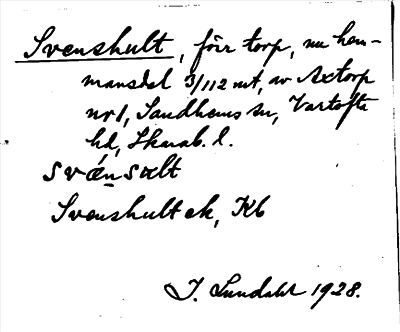 Svenshult, förr torp, nu hem-
mansdel 3/112 mt, av Axtorp
nr 1, Sandhems sn, Vartofta
hd, Skarab. l.
svǽnsɑlt
Svenshult ek, Kb
I. Lundahl 1928.